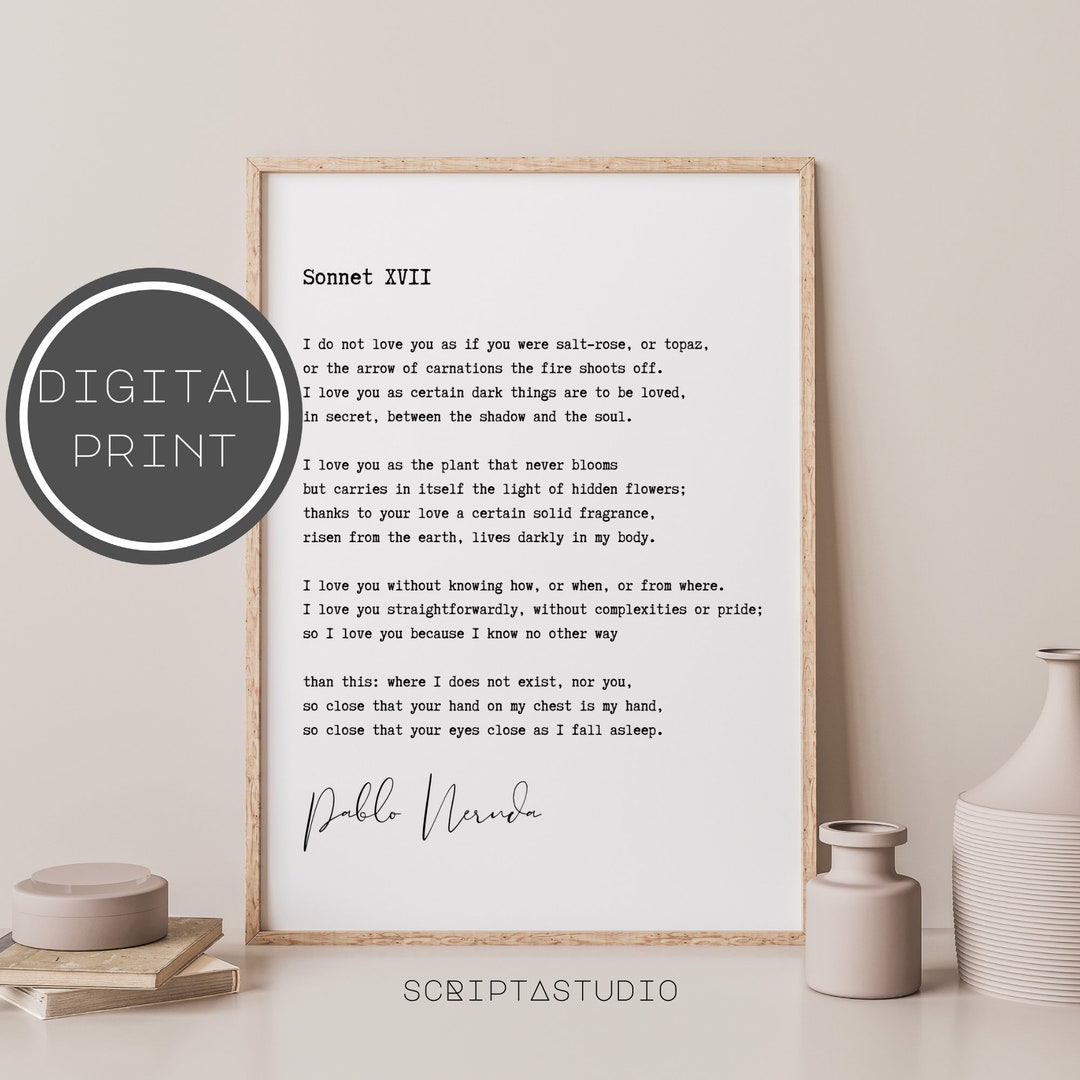 DIGITAL
PRINT
Sonnet XVII
I do not love you as if you were salt-rose, or topaz,
or the arrow of carnations the fire shoots off.
I love you as certain dark things are to be loved,
in secret, between the shadow and the soul.
I love you as the plant that never blooms
but carries in itself the light of hidden flowers;
thanks to your love a certain solid fragrance,
risen from the earth, lives darkly in my body.
I love you without knowing how, or when, or from where.
I love you straightforwardly, without complexities or pride;
so I love you because I know no other way
than this: where I does not exist, nor you,
so close that your hand on my chest is my hand,
so close that your eyes close as I fall asleep.
Pablo Neruda
SCRIPTASTUDIO